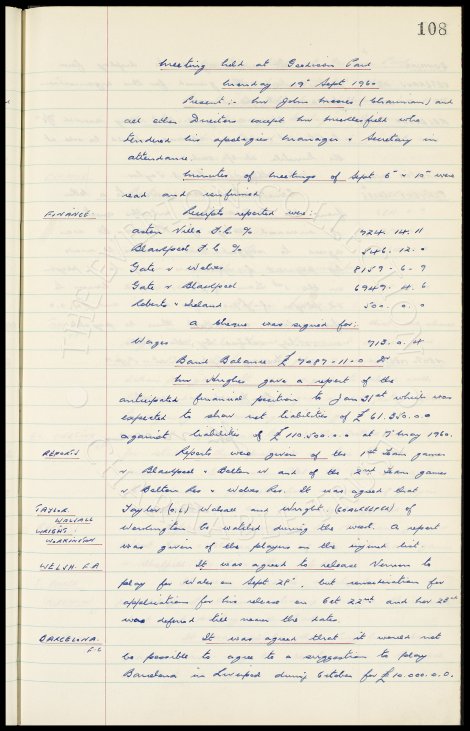 108
Meeting held at Goodison Park
Monday 19th Sept 1960
Present:- Mr John Moores (Chairman) and
all other Directors except Mr Micklesfield who
tendered his apologies Manager & Secretary in
attendance.
Minutes of Meetings of Sept 6th & 10th were
read and confirmed
FINANCE. Receipts reported were:-
Aston Villa F.C. % 724. 14. 11
Blackpool F.C. % 546. 12. 0
Gate v Wolves 8159 - 6 - 9
Gate v Blackpool 6949. 4. 6
Roberts & Ireland 500. 0. 0
A Cheque was signed for:
Wages 713. 0. 4
Bank Balance £7087-11-0 Dr
Mr Hughes gave a report of the
anticipated financial position to Jan 31st which was
expected to show net liabilities of £
against liabilities of £110.500.0.0 at 7 May 1960.
REPORTS Reports were given of the 1st Team games
v. Blackpool & Bolton W and of the 2nd Team games
v Bolton Res & Wolves Res. It was agreed that
TAYLOR. WALSALL Taylor (O.L) Walsall and Wright. (GOALKEEPER) of
WRIGHT. WARRINGTON Warrington be watched during the week. A report
was given of the players on the injured list.
WELSH. F.A It was agreed to release Vernon to
play for Wales on Sept 28th, but consideration for
applications for his release on Oct 22nd and Nov
was deferred till nearer the dates.
BARCELONA. F.C It was agreed that it would not
be possible to agree to a suggestion to play
Barcelona in Liverpool during October for £10.000.0.0.